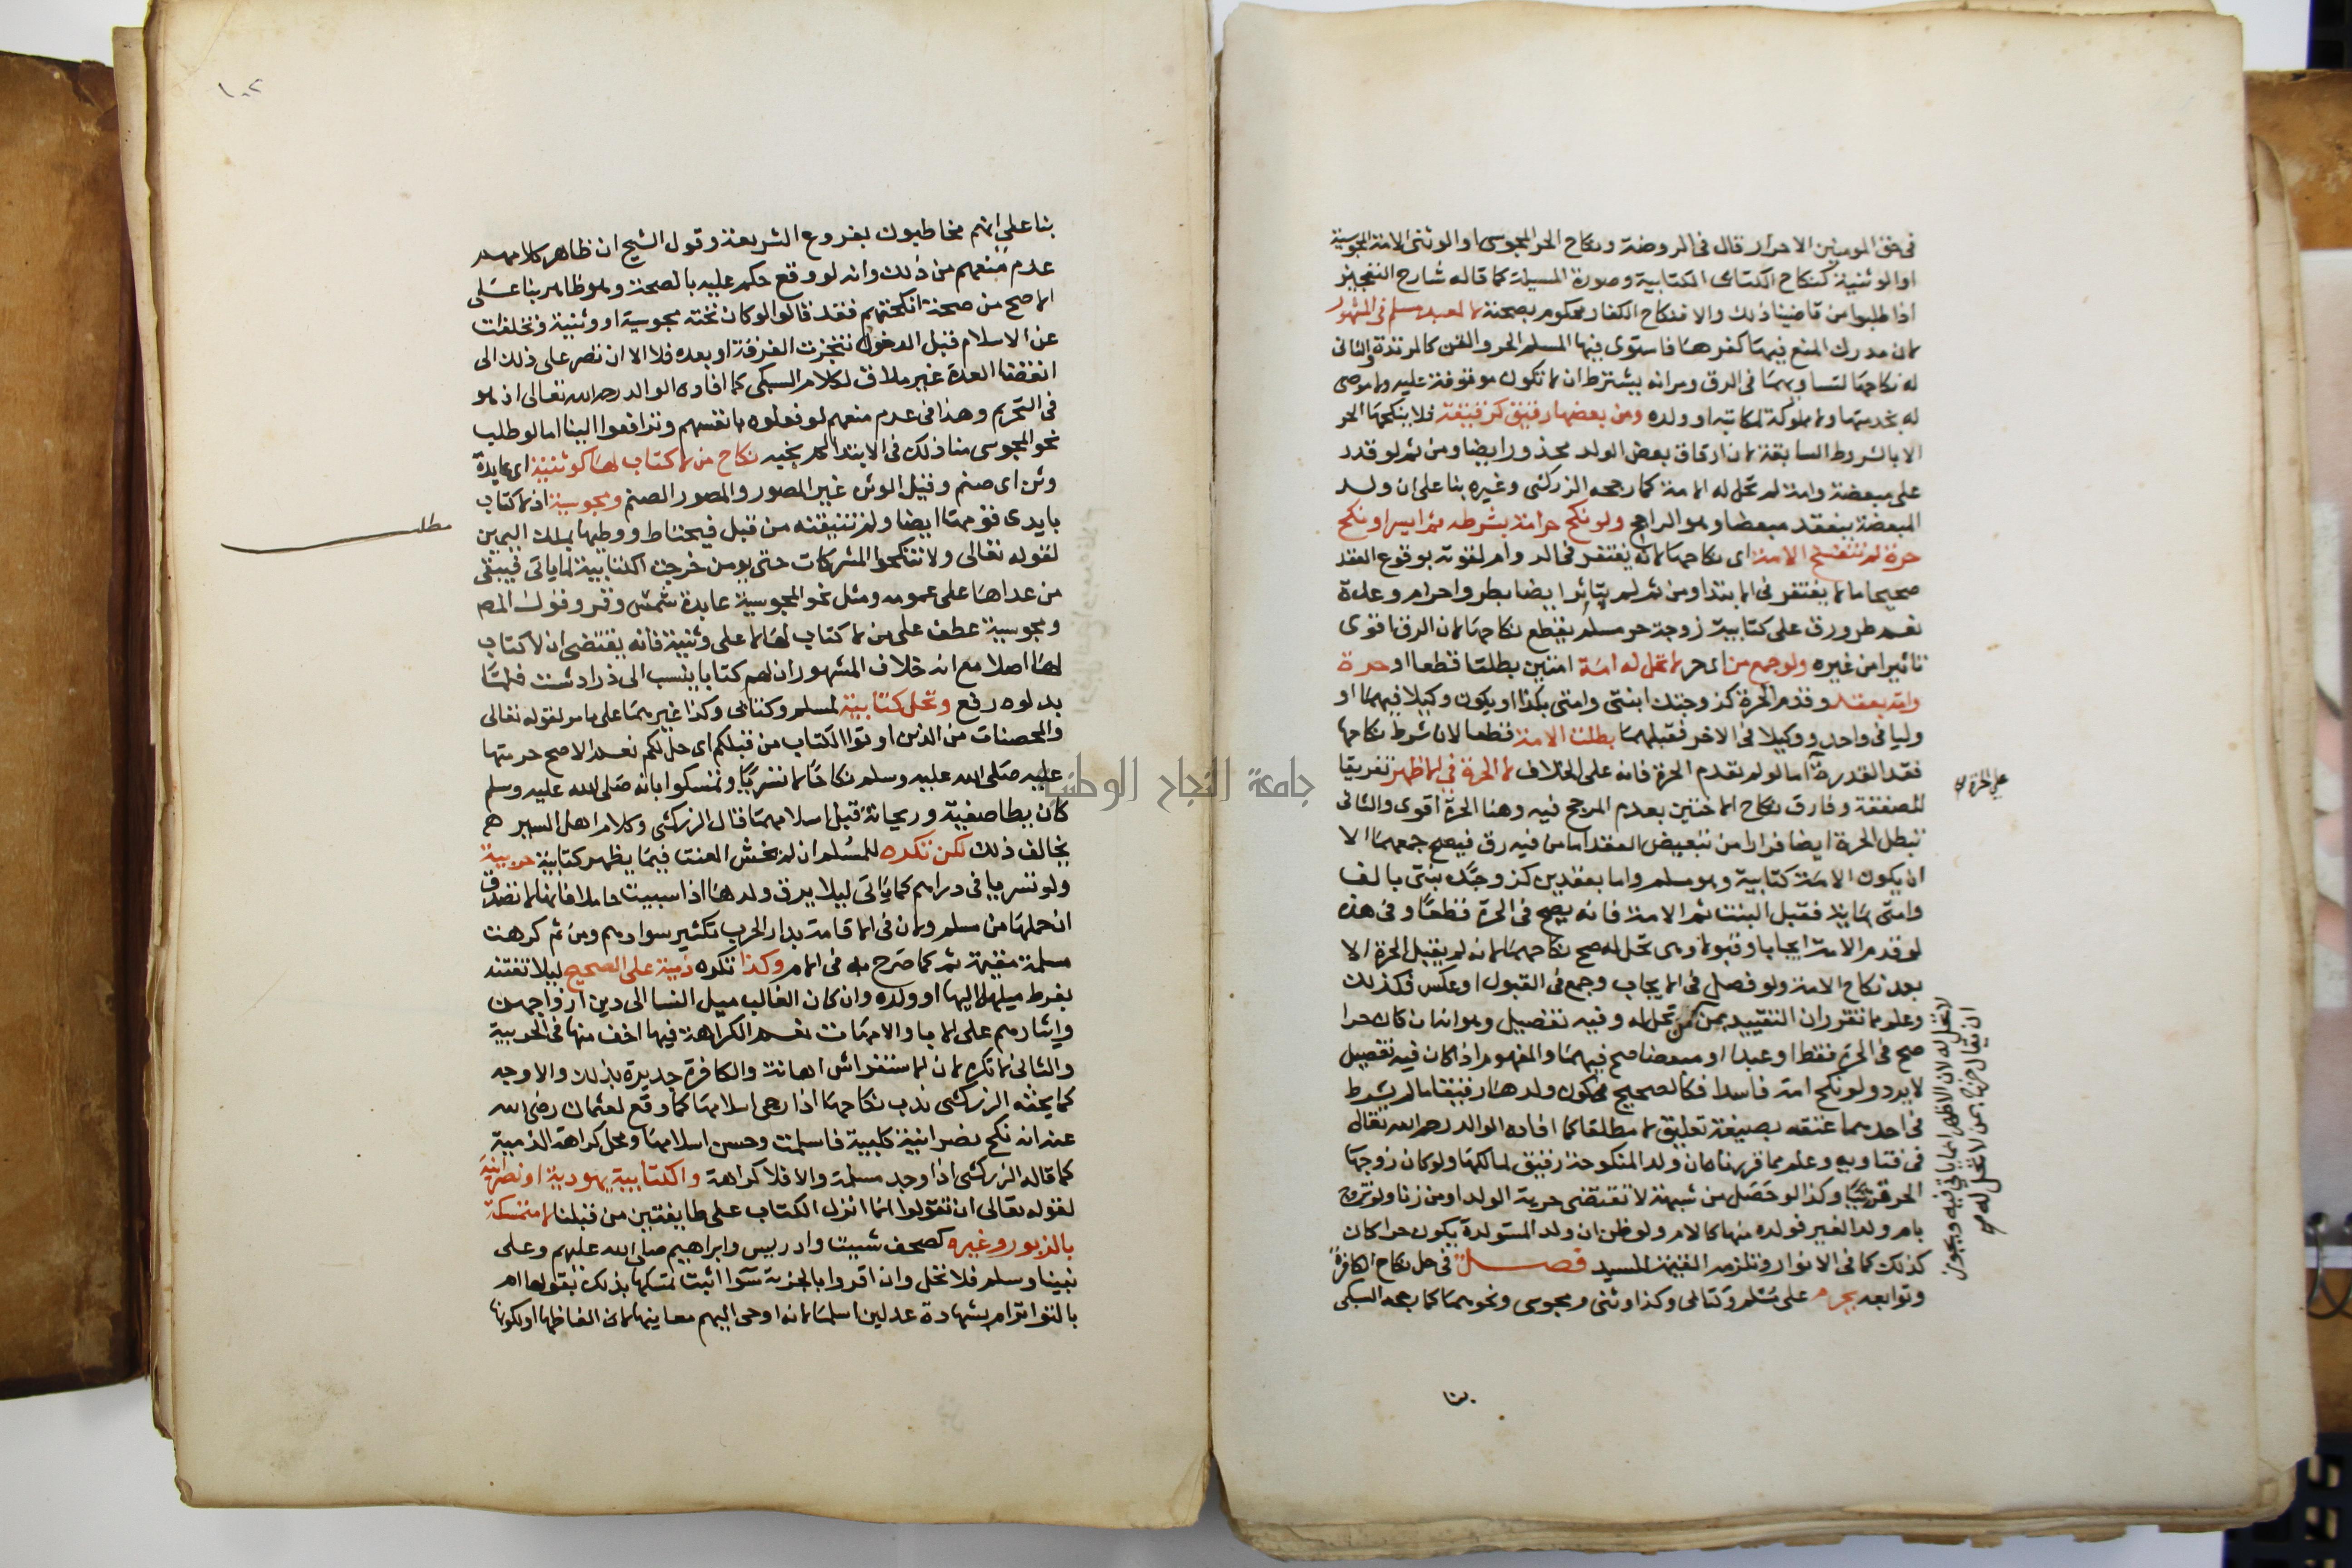 في حق المومنين الاحرار قال في الروضة ونكاح الحر المجوسي او الوثني الامة المجوسية
او الوثنية كنكاح الكتابي الكتابية وصورة المسيلة كما قاله شارح التعجيز
اذا طلبوا من قاضينا ذلك والا فنكاح الكفار محكوم بصحته لا لعبد مسلم في المشهور
لان مدرك المنع فيها كفرها فاستوى فيها المسلم الحر والقن كالمرتدة والثاني
له نكاحها لتساويهما في الرق ومر انه يشترط ان لا تكون موقوفة عليه ولا موصى
له بخدمتها ولا مملوكة لمكاتبه او ولده ومن بعضها رقيق كرقيقة فلا ينكحها الحر
الا بالشروط السابقة لان ارقاق بعض الولد محذور ايضا ومن ثم لو قدر
على مبعضة وامة لم تحل له الامة كما رجحه الزركشي وغيره بنا على ان ولد
المبعضة ينعقد مبعضا وهو الراجح ولو نكح حر امة بشرطه ثم ايسر او نكح
حرة لم تنفسخ الامة اي نكاحها لانه يغتفر في الدوام لقوته بوقوع العقد
صحيحا ما لا يغتفر في الابتدا ومن ثم لم يتاثر ايضا بطرو احرام وعدة
نعم طرو رق على كتابية زوجة حر مسلم يقطع نكاحها لان الرق اقوى
تاثيرا من غيره ولو جمع من اي حر لا تحل له امة امتين بطلتا قطعا او حرة
وامة بعقد وقدم الحرة كزوجتك ابنتي وامتي بكذا او يكون وكيلا فيهما او
وليا في واحد ووكيلا في الاخر فقبلهما بطلت الامة قطعا لان شرط نكاحها
فقد القدرة اما لو لم تقدم الحرة فانه على الخلاف لا الحرة في الاظهر تفريقا
على الحرة
للصفقة وفارق نكاح الاختين بعدم المرجح فيه وهنا الحرة اقوى والثاني
تبطل الحرة ايضا فرارا من تبعيض العقد اما من فيه رق فيصح جمعهما الا
ان يكون الامة كتابية وهو مسلم واما بعقدين كزوجتك بنتي بالف
وامتي بماية فقبل البنت ثم الامة فانه يصح في الحرة قطعا وفي هذه
لو قدم الامة ايجابا وقبولا وهي تحل له صح نكاحهما لانه لم يقبل الحرة الا
بعد نكاح الامة ولو فصل في الايجاب وجمع في القبول او عكس فكذلك
وعلم مما تقرر ان التقييد بمن تحل له وفيه تفصيل وهو انه ان كان حرا
صح في الحرة فقط او عبدا او مبعضا صح فيهما والمفهوم اذا كان فيه تفصيل
لا يرد ولو نكح امة فاسدا فكالصحيح في كون ولدها رقيقا ما لم يشرط
في احدهما عتقه بصيغة تعليق لا مطلقا كما افاده الوالد رحمه الله تعالى
في فتاويه وعلم مما قررناه ان ولد المنكوحة رقيق لمالكها ولو كان زوجها
الحر قريبا وكذا لو حصل من شبهة لا تقتضي حرية الولد او من زنا ولو تزوج
بام ولد الغير فولده منها كالام ولو ظن ان ولد المستولدة يكون حرا كان
كذلك كما في الانوار وتلزمه القيمة للسيد فصل في حل نكاح الكافرة
وتوابعه يحرم على مسلم وكتابي وكذا وثني ومجوسي ونحوهما كما بحثه السبكي
بنا
مطلب
بنا على انهم مخاطبون بفروع الشريعة وقول الشيخ ان ظاهر كلامهم
عدم منعهم من ذلك وانه لو وقع حكم عليه بالصحة وهو ظاهر بنا على
الاصح من صحة انكحتهم فقد قالوا لو كان تحته مجوسية او وثنية وتخلفت
عن الاسلام قبل الدخول تنجزت الفرقة او بعده فلا الا ان نصر على ذلك الى
انقضا العدة غير ملاق لكلام السبكي كما افاده الوالد رحمه الله تعالى اذ هو
في التحريم وهذا في عدم منعهم لو فعلوه بانفسهم وترافعوا الينا اما لو طلب
نحو المجوسي منا ذلك في الابتدا لم يجبه نكاح من لا كتاب لها كوثنية اي عابدة
وثن اي صنم وقيل الوثن غير المصور والمصور الصنم ومجوسية اذ لا كتاب
بايدي قومها ايضا ولم نتيقنه من قبل فيحتاط ووطيها بملك اليمين
لقوله تعالى ولا تنكحوا المشركات حتى يومن خرجت الكتابية لما ياتي فيبقى
من عداها على عمومه ومثل نحو المجوسية عابدة شمس وقمر وقول المص
ومجوسية عطف على من لا كتاب لها لا على وثنية فانه يقتضي ان لا كتاب
لها اصلا مع انه خلاف المشهور ان لهم كتابا ينسب الى زرادشت فلما
بدلوه رفع وتحل كتابية لمسلم وكتابي وكذا غيرهما على ما مر لقوله تعالى
والمحصنات من الذين اوتوا الكتاب من قبلكم اي حل لكم نعم الاصح حرمتها
عليه صلى الله عليه وسلم نكاحا لا تسريا وتمسكوا بانه صلى الله عليه وسلم
كان يطا صفية وريحانة قبل اسلامهما قال الزركشي وكلام اهل السير
يخالف ذلك لكن تكره للمسلم ان لم يخش العنت فيما يظهر كتابية حربية
ولو تسريا في دراهم كما ياتي ليلا يرق ولدها اذا سبيت حاملا فانها لا تصدق
ان حملها من مسلم ولان في الاقامة بدار الحرب تكثير سوادهم ومن ثم كرهت
مسلمة مقيمة ثم كما صرح به في الام وكذا تكره ذمية على الصحيح ليلا تفتنه
بفرط ميله اليها او ولده وان كان الغالب ميل النسا الى دين ازواجهن
وايثارهم على الابا والامهات نعم الكراهة فيها اخف منها في الحربية
والثاني لا تكره لان الاستفراش اهانة والكافرة جديرة بذلك والاوجه
كما بحثه الزركشي ندب نكاحها اذا رجي اسلامها كما وقع لعثمان رضي الله
عنه انه نكح نصرانية كلبية فاسلمت وحسن اسلامها ومحل كراهة الذمية
كما قاله الزركشي اذا وجد مسلمة والا فلا كراهة والكتابية يهودية او نصرانية
لقوله تعالى ان تقولوا انما انزل الكتاب على طايفتين من قبلنا لا متمسكة
بالزبور وغيره كصحف شيت وادريس وابراهيم صلى الله عليهم وعلى
نبينا وسلم فلا تحل وان اقروا بالجزية سوا اثبت تمسكها بذلك بقولها ام
بالتواتر ام بشهادة عدلين اسلما لانه اوحي اليهم معانيها لا الفاظها او لكونها
١٠٢
جامعة النجاح الوطنية